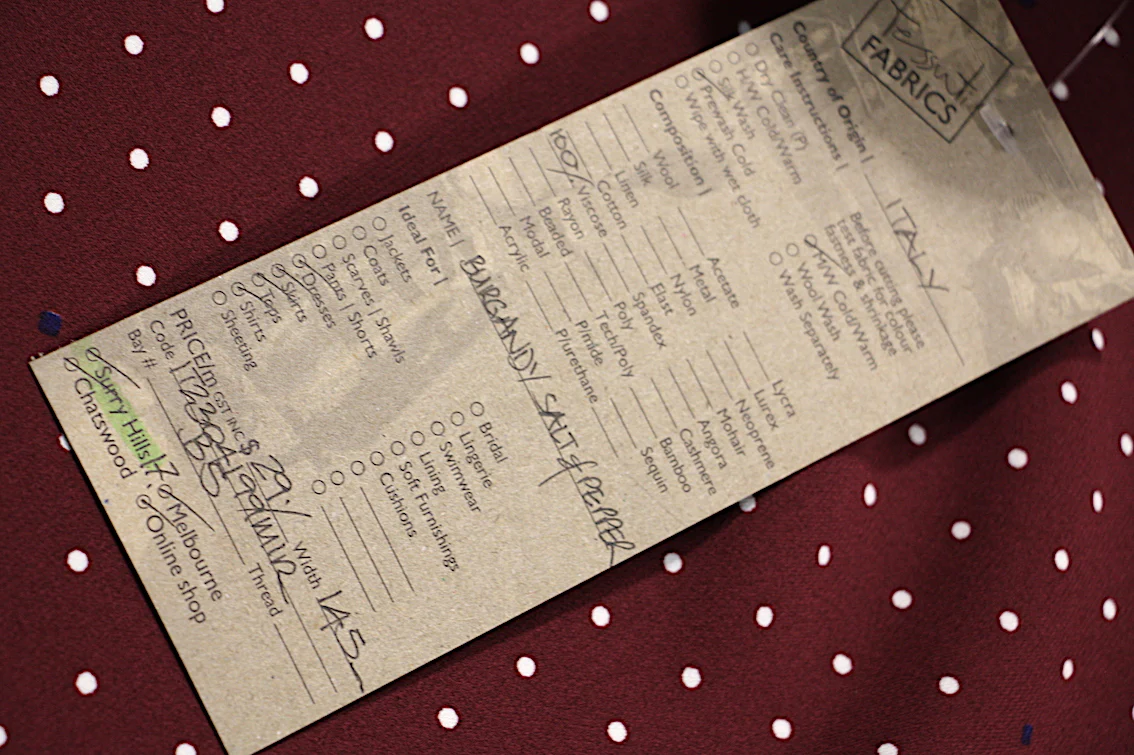 Tessuti
FABRICS
Country of Origin | ITALY
Care Instructions |
Before cutting please
test fabric for colour
fastness & shrinkage
Dry Clean (P)
H/W Cold/Warm
Silk Wash
Prewash Cold
Wipe with wet cloth
M/W Cold/Warm
Wool Wash
Wash Separately
Composition |
Wool
Silk
Linen
Cotton
100% Viscose
Rayon
Beaded
Modal
Acrylic
Acetate
Metal
Nylon
Elast
Spandex
Poly
Tech/Poly
P/mide
P/urethane
Lycra
Lurex
Neoprene
Mohair
Angora
Cashmere
Bamboo
Sequin
NAME | BURGANDY SALT & PEPPER
Ideal For |
Jackets
Coats
Scarves | Shawls
Pants | Shorts
Dresses
Skirts
Tops
Shirts
Sheeting
Bridal
Lingerie
Swimwear
Lining
Soft Furnishings
Cushions
PRICE/m GST INC $ 29.- Width 145
Code |
Bay # Thread
Surry Hills
Melbourne
Chatswood
Online shop